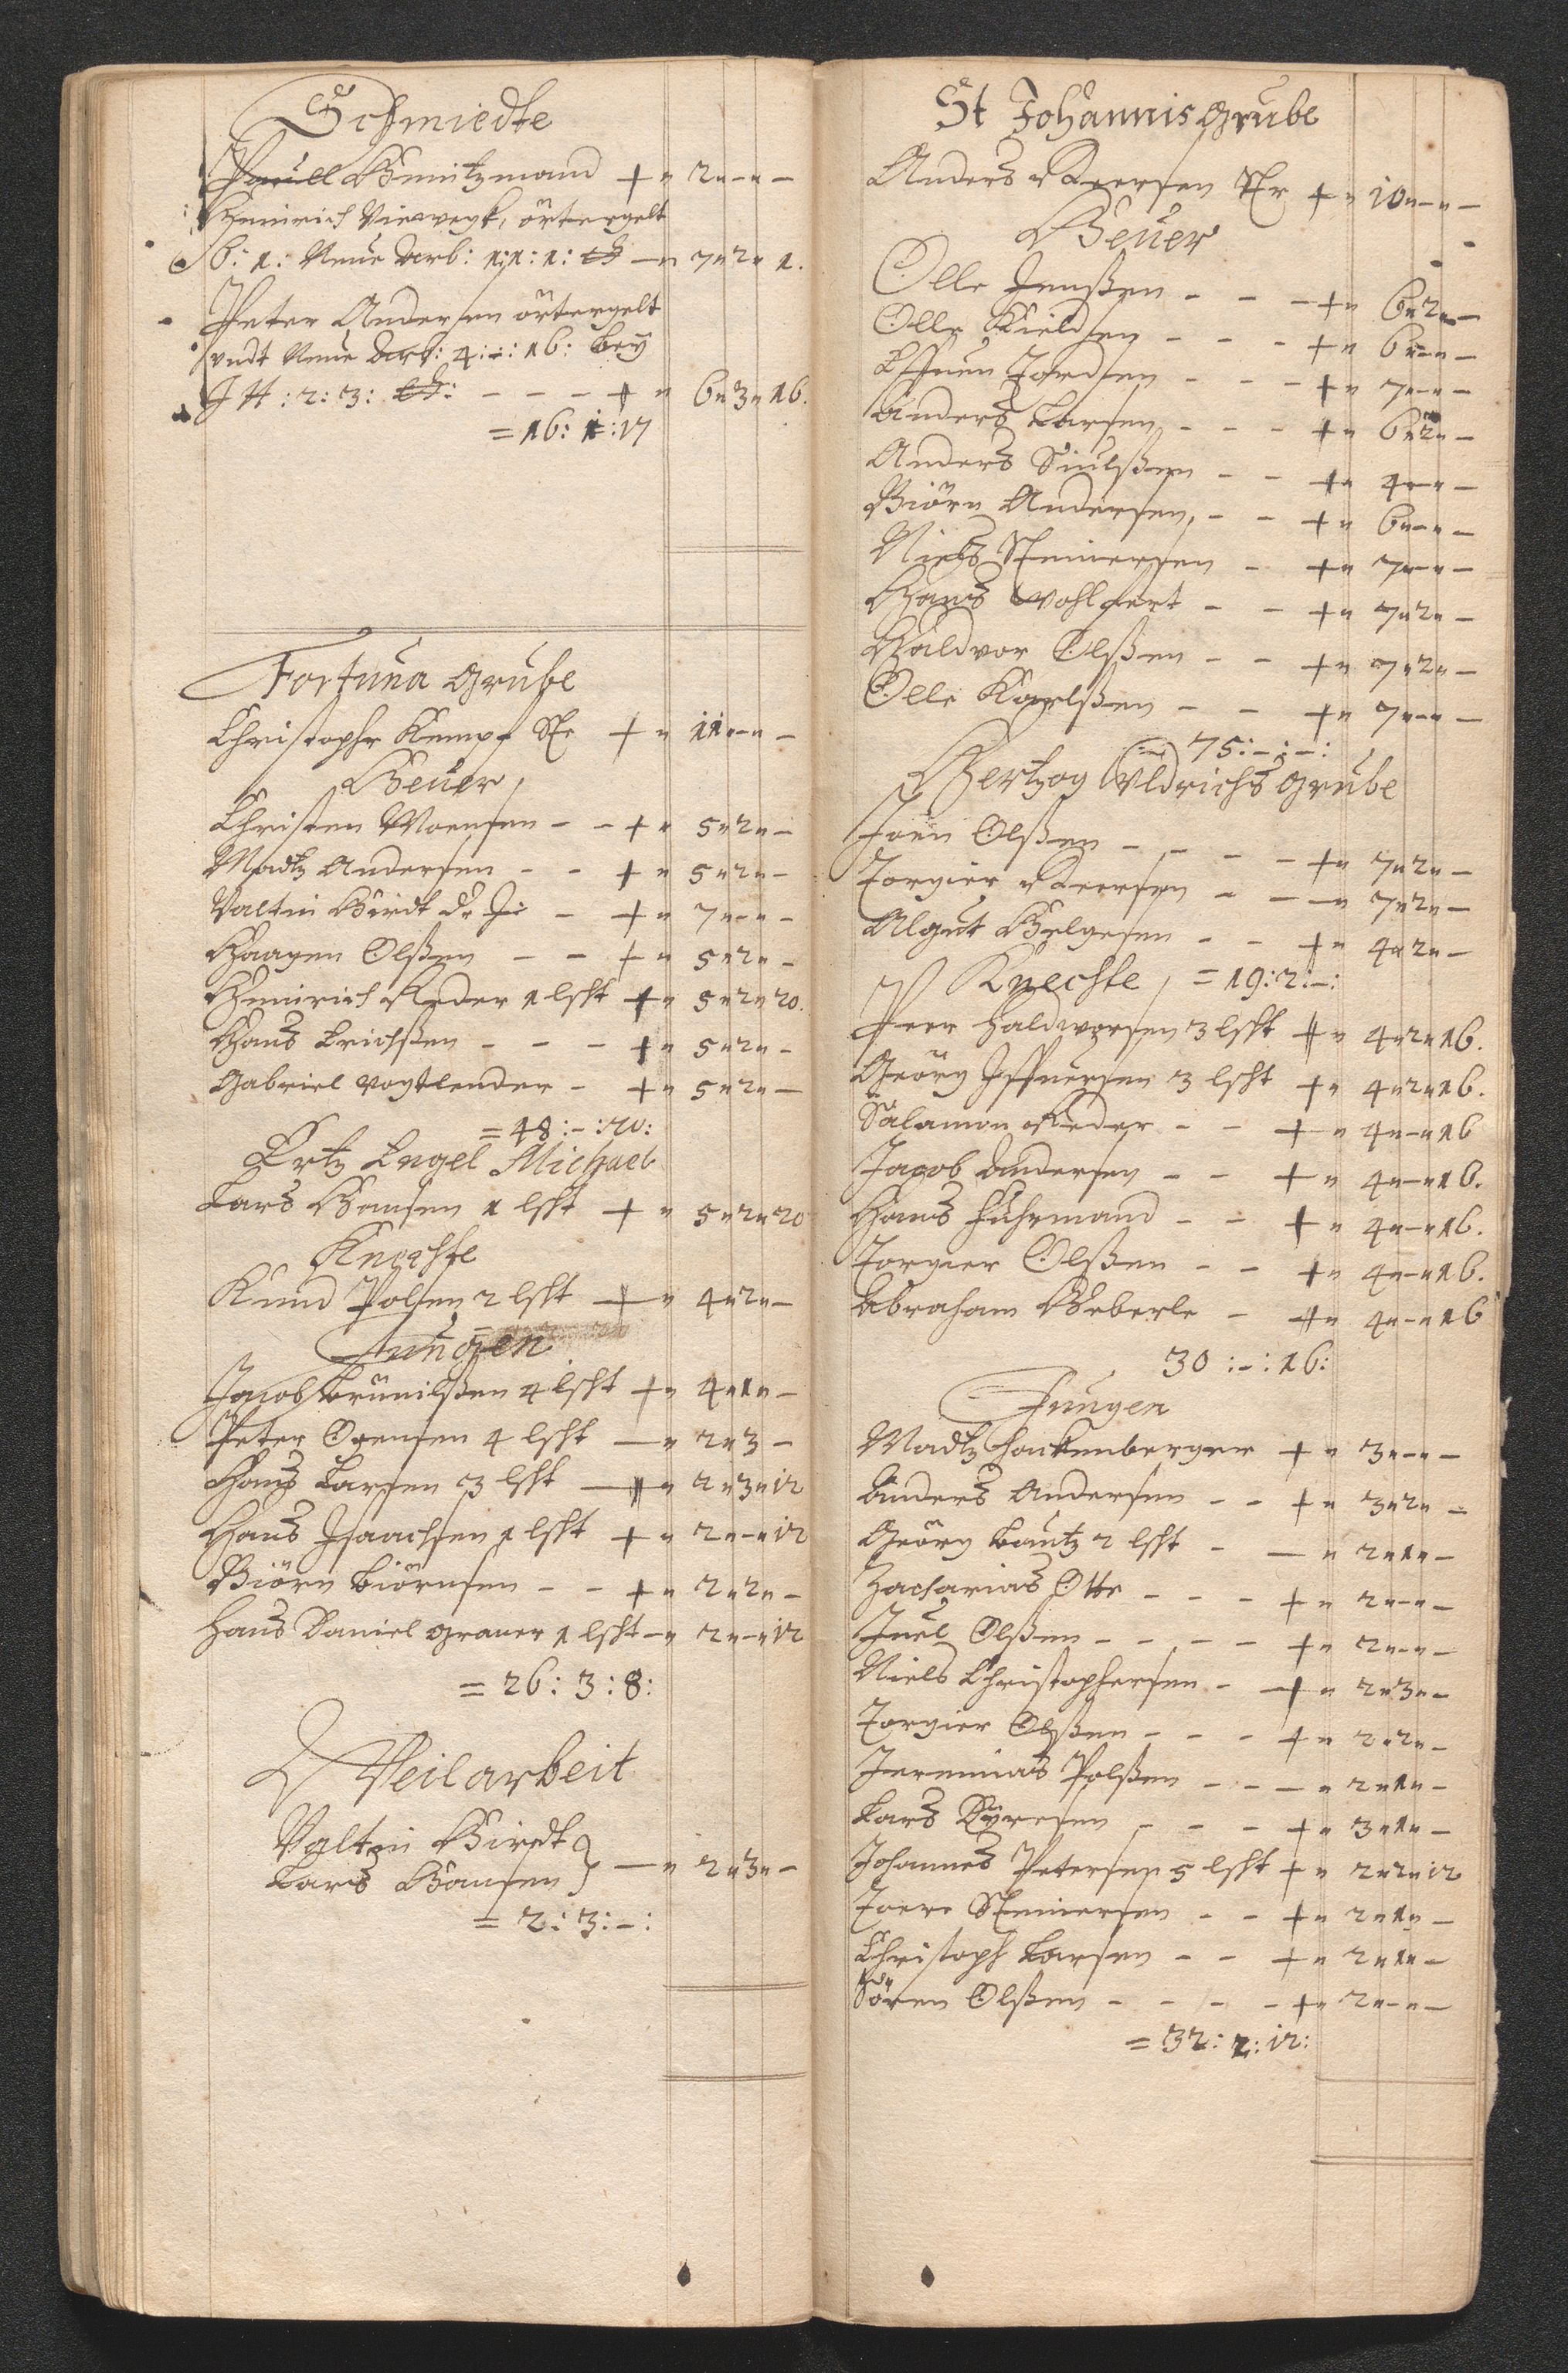 Schmiedte
Pouell Gmitzmand + " 2 " - " -
Heinrich Viewegk, örtergelt
6: 1: Neue darb: 1: 1: 1: - " 7 " 2 " 1.
Peter Andersen örtergelt
vndt Neue darb: 4: -: 16: beÿ
JH: 2: 3: - - - + " 6 " 3 " 16.
= 16: 1: 17
Fortuna grube
Christopher Kempf St + " 11 " - " -
Heuer
Christen Moensen - - + " 5 " 2 " -
Madtz Andersen - - + " 5 " 2 " -
Valtin Hirdt - + " 7 " - " -
Haagen Olßen - - + " 5 " 2 " -
Heinrich Reder 1 lscht + " 5 " 2 " 20.
Hans Erichßen - - - + " 5 " 2 " -
Gabriel Vogtlender - + " 5 " 2 " -
= 48: -: 20:
Ertz Engel Michael
Lars Hansen 1 lscht + " 5 " 2 " 20
Knechte
Knud Polsen 2 lscht + " 4 " 2 " -
Jungen
Jacob Brunilßen 4 lscht + " 4 " 1 " -
Peter Oxensen 4 lscht - " 2 " 3 -
Hans Larsen 3 lscht - + " 2 " 3 " 12
Hans Isaachsen 1 lscht + " 2 " - " 12
Biörn Biörnsen - - + " 2 " 2 " -
Hans Daniel graner 1 lscht - " 2 " - " 12
= 26: 3: 8:
Weilarbeit
Valtin Hirdt
Lars Hansen } - " 2 " 3 " -
= 2: 3: -:
St Johannis grube
Anders Peersen St + " 10 " - " -
Heuer
Olle Jenßen - - - + " 6 " 2 " -
Olle Kieldsen - - - + " 6 " - " -
Effuen Tordsen - - - + " 7 " - " -
Anders Larsen - - - + " 6 " 2 " -
Anders Siulßen - - + " 4 " - " -
Biörn Andersen - - + " 6 " - " -
Niels Steinersen - + " 7 " - " -
Hans Wohlfert - - + " 7 " 2 " -
Haldvor Olßen - - + " 7 " 2 " -
Olle Karelßen - - + " 7 " - " -
75: -: -:
Hertzog Vldrichs grube
Joen Olßen - - - - + " 7 " 2 " -
Torgier Peersen - - - " 7 " 2 " -
Algut Helgesen - - + " 4 " 2 " -
Knechte = 19: 2: -:
Peer Haldworsen 3 lscht + " 4 " 2 " 16.
Geörg Iffuersen 3 lscht + " 4 " 2 " 16.
Salamon Reder - - + " 4 " - " 16
Jacob Andersen - - + " 4 " - " 16.
Hans Fuhrmand - - + " 4 " - " 16.
Torgier Olßen - - + " 4 " - " 16.
Abraham Heberle - + " 4 " - " 16
30: -: 16:
Jungen
Madtz Hackenberger + " 3 " - " -
Anders Andersen - - + " 3 " 2 " -
Geörg Bautz 2 lscht - - " 2 " 1 " -
Zacharias Otte - - - + " 2 " - " -
Juel Olßen - - - - + " 2 " - " -
Niels Christophersen - + " 2 " 3 " -
Torgier Olßen - - - + " 2 " 2 " -
Jeremias Polßen - - - " 2 " 1 " -
Lars Dÿresen - - - + " 3 " 1 " -
Johannes Petersen 5 lscht + " 2 " 2 " 12
Toere Steinersen - - + " 2 " 1 " -
Christoph Larsen - - + " 2 " 1 " -
Sören Olßen - - - - + " 2 " - " -
= 32: 2: 12: